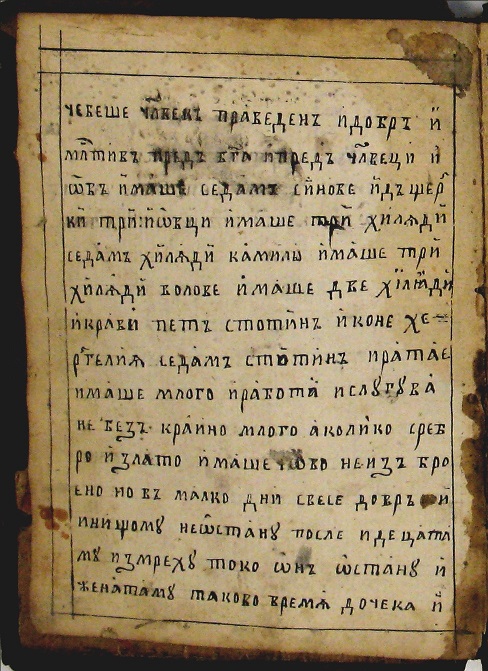 чебеше чл҃векъ праведенъ идобръ й
мл҃тивъ предъ бг҃а ипредъ чл҃веци и
ѡвъ имаше седамъ си́нове идъщер
ки трй: иѡвци и́маше трй хилѧдй
седамъ хилѧдй камилы и́маше трй
хилѧдй волове и́маше две хїлѧдй
икравй петъ стоти́нъ и́коне хе=
ргелиꙗ седамъ стоти́нъ иратае
имаше млого иработй ислугува
не безъ краино млого аколи́ко среб
ро и́злато имаше июво неизъ бро
ено но въ малко дни свесе добръ й
инищому неѡстану после идецата
му изме́реху токо ѡнъ ѡстану й
женатаму таково времѧ дочека й